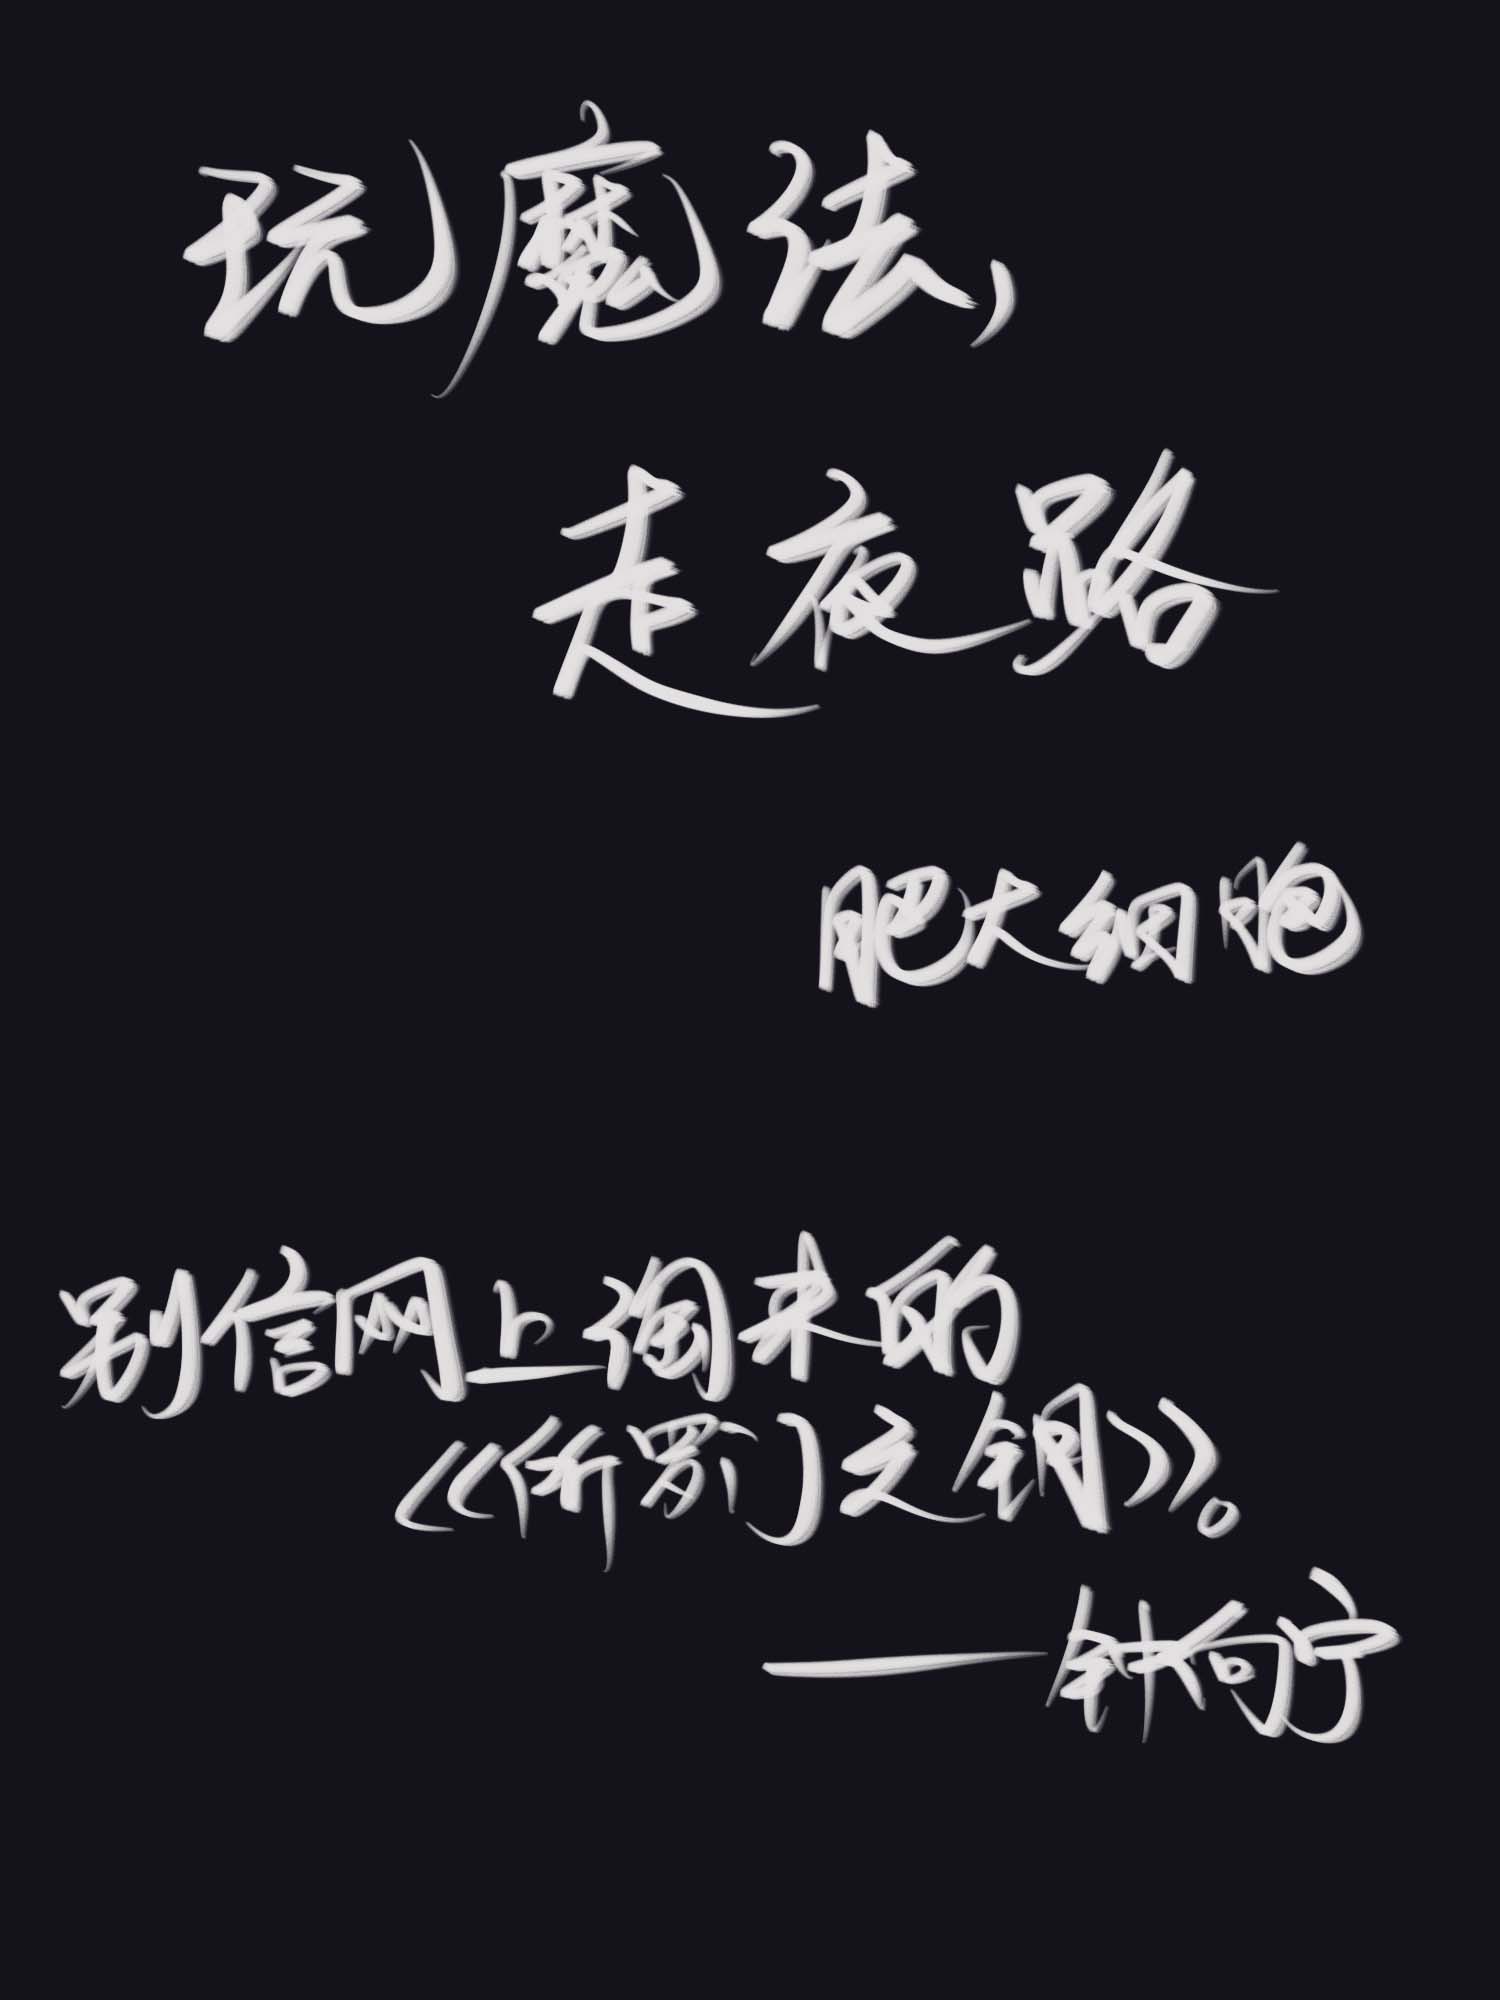 玩魔法，
走夜路
肥大细胞
别信网上淘来的
《所罗门之钥》。
——钟向宁